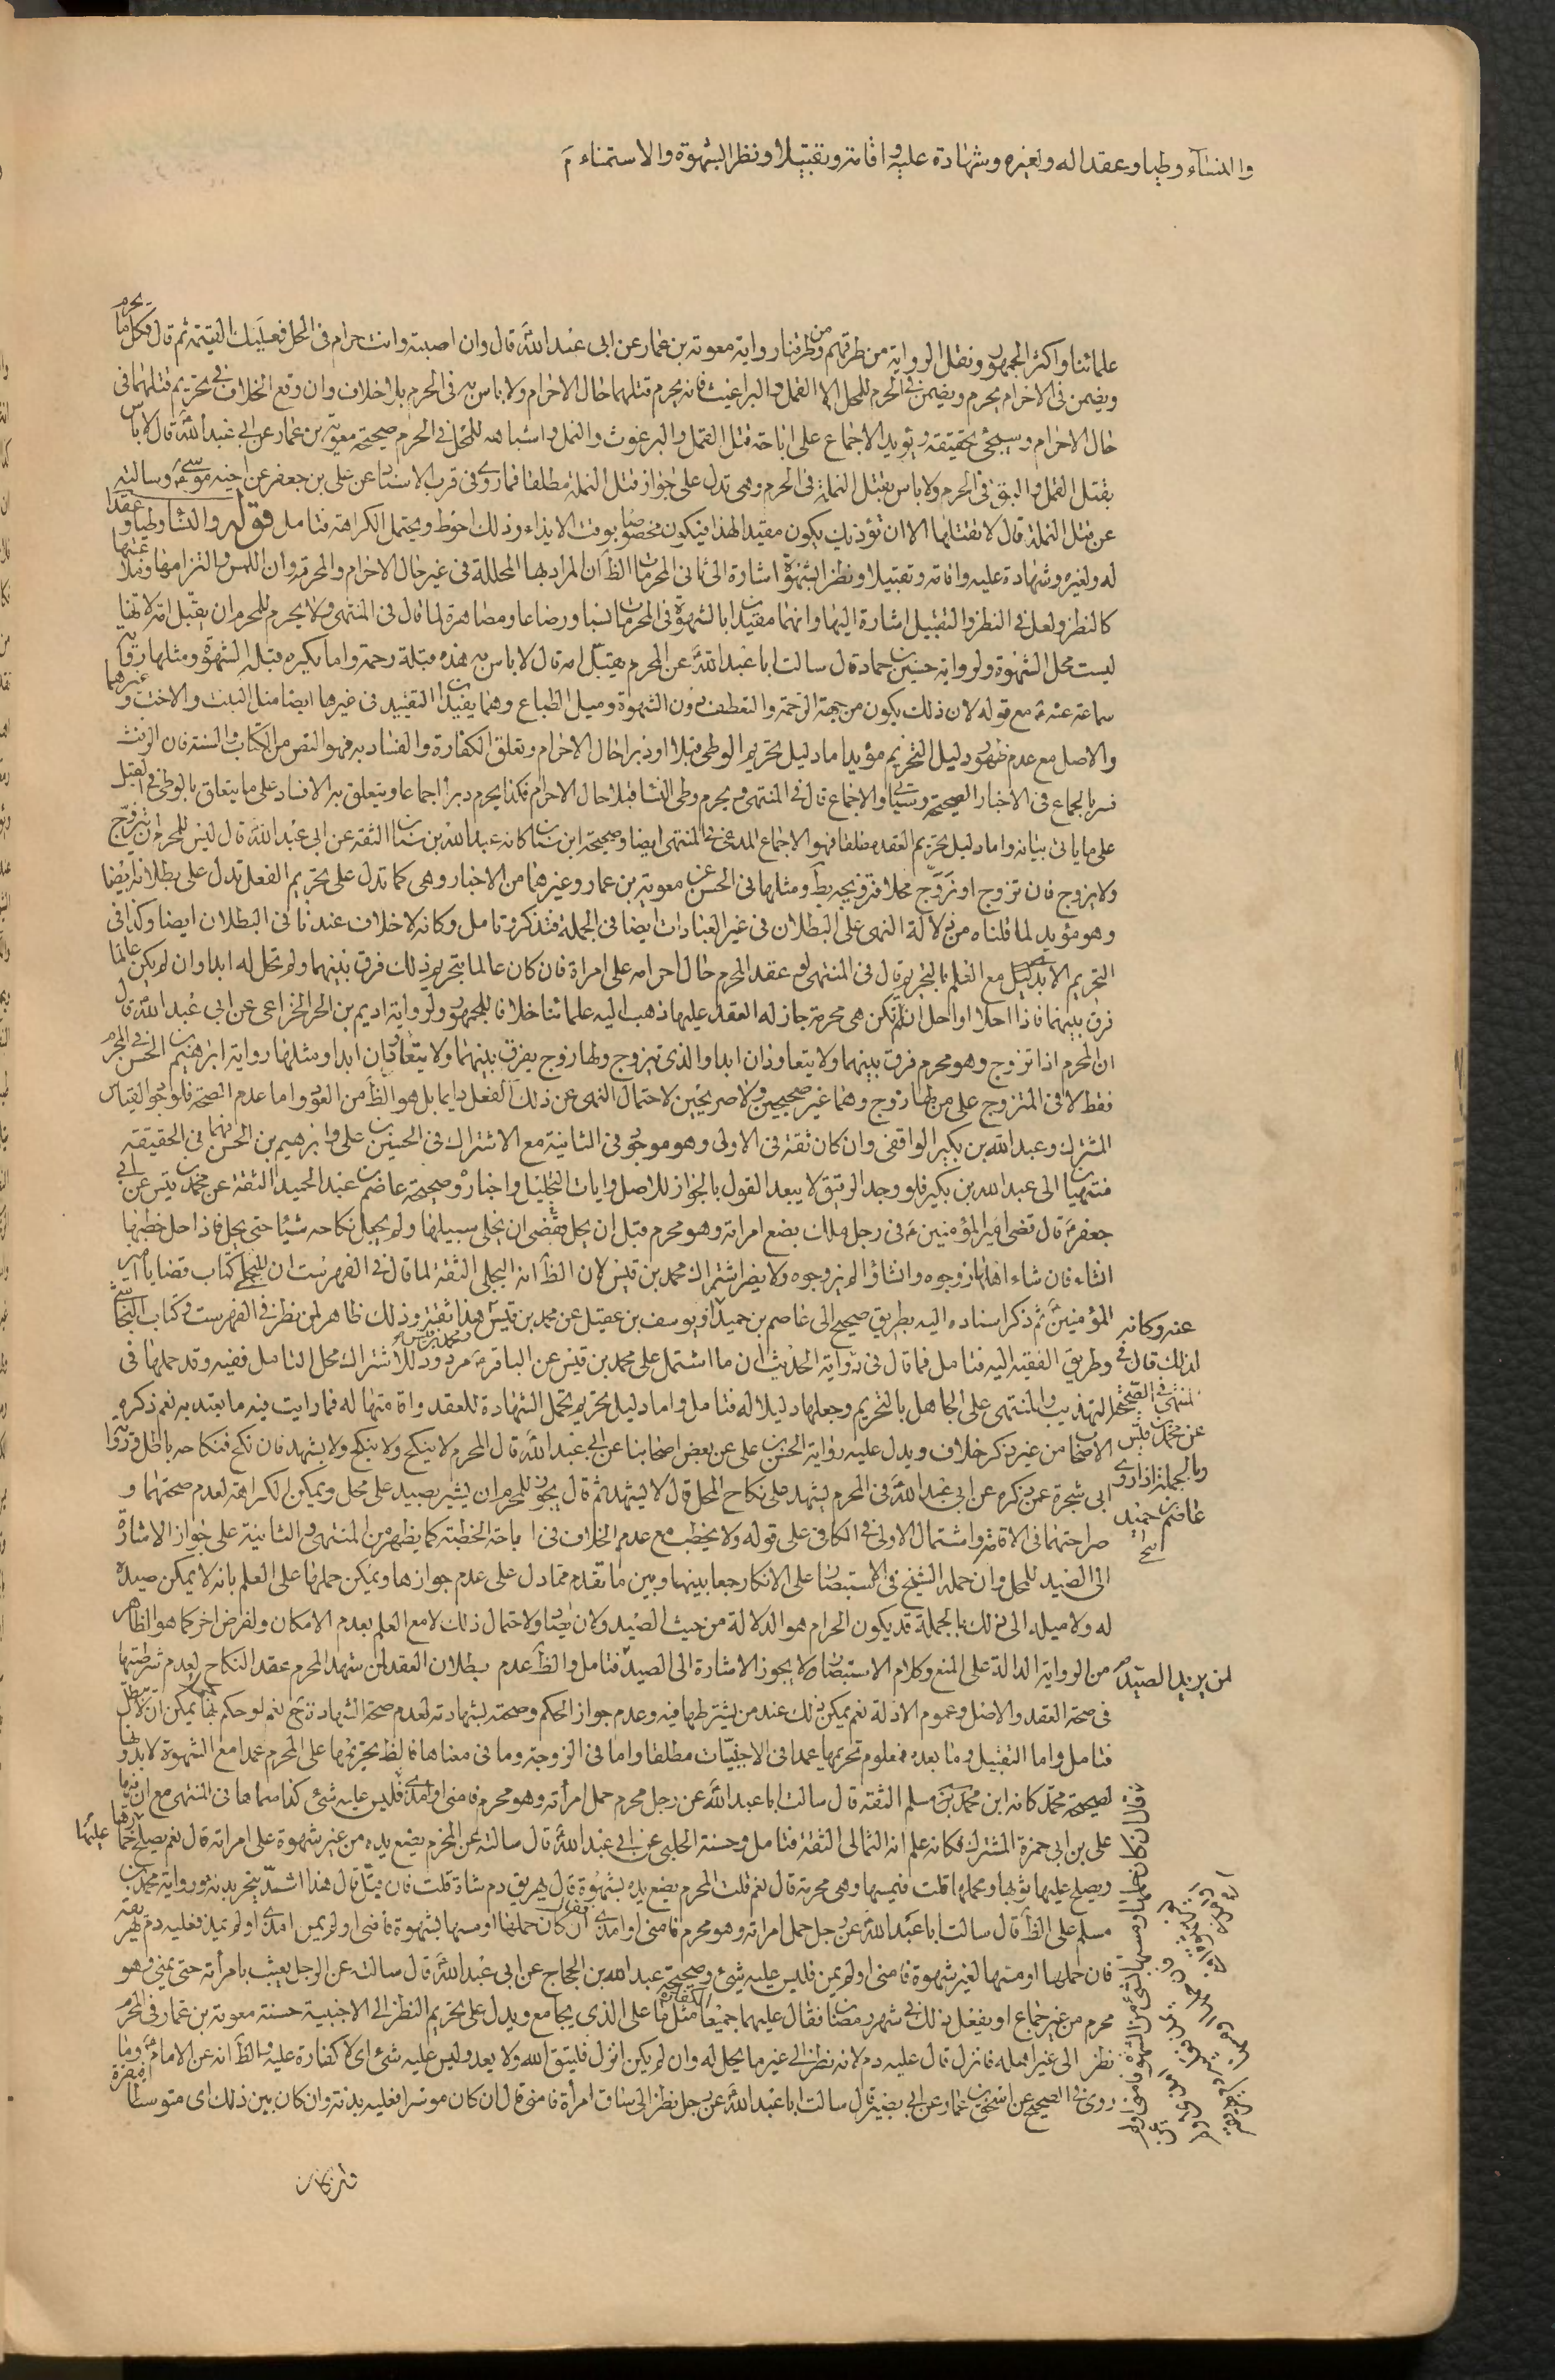 والنساء وطيا وعقدا له ولغيره وشهادة عليه واقامة وتقبيلا ونظرا بشهوة والاستمناء
علمائنا واكثر الجمهور ونقل الرواية من طرقهم ومن طرقنا رواية معوية بن عمار عن ابي عبد الله قال وان اصبته وانت حرام في الحل فعليك القيمة ثم قال فكل ما يحرم
ويضمن في الاحرام يحرم ويضمن في الحرم للمحل الا القمل والبراغيث فانه يحرم قتلهما حال الاحرام ولا باس به في الحرم بلا خلاف وان وقع الخلاف في تحريم قتلهما في
حال الاحرام وسيجئ تحقيقه ويؤيد الاجماع على اباحة قتل القمل والبرغوث والنمل واشباهه للمحل في الحرم صحيحة معوية بن عمار عن ابي عبد الله قال لا باس
بقتل القمل والبق في الحرم ولا باس بقتل النملة في الحرم وهي تدل على جواز قتل النملة مطلقا فما روى في قرب الاسناد عن علي بن جعفر عن اخيه موسى وسالته
عن قتل النملة قال لا تقتلها الا ان تؤذيك يكون مقيدا لهذا فيكون مخصوصا بوقت الايذاء وذلك احوط ويحتمل الكراهة فتامل قوله والنساء وطيا وعقدا
له ولغيره وشهادة عليه واقامة وتقبيلا ونظرا بشهوة اشارة الى ثاني المحرمات الظ ان المراد بها المحللة في غير حال الاحرام والمحرمة وان اللمس والتزامها ونقلا عنها
كالنظر ولعل في النظر والتقبيل اشارة اليها وانهما مقيدان بالشهوة في المحرمات نسبا ورضاعا ومصاهرة لما قال في المنتهى ولا يحرم للمحرم ان يقبل امه لانها
ليست محل الشهوة ولرواية حسين بن حماد قال سالت ابا عبد الله عن المحرم يقبل امه قال لا باس به هذه قبلة رحمة وانما يكره قبلة الشهوة ومثلها رواية
سماعة عنه مع قوله لان ذلك يكون من جهة الرحمة والتعطف دون الشهوة وميل الطباع وهما يفيدان التقييد في غيرها ايضا مثل البنت والاخت وغيرهما
والاصل مع عدم ظهور دليل التحريم مؤيد اما دليل تحريم الوطى قبلا او دبرا حال الاحرام وتعلق الكفارة والفساد به فهو النص من الكتاب والسنة فان الرفث
فسر بالجماع في الاخبار الصحيحة وسياتي والاجماع قال في المنتهى ويحرم وطى النساء قبلا حال الاحرام فكذا يحرم دبرا اجماعا ويتعلق به الافساد على ما يتعلق بالوطى في القبل
على ما ياتي بيانه واما دليل تحريم العقد مطلقا فهو الاجماع المدعى في المنتهى ايضا وصحيحة ابن سنان كانه عبد الله بن سنان الثقة عن ابي عبد الله قال ليس للمحرم ان يتزوج
ولا يزوج فان تزوج او زوج محلا فتزويجه بط ومثلها في الحسن عن معوية بن عمار وغيرهما من الاخبار وهي كما تدل على تحريم الفعل تدل على بطلانه ايضا
وهو مؤيد لما قلناه من دلالة النهى على البطلان في غير العبادات ايضا في الجملة فتذكر وتامل وكانه لا خلاف عندنا في البطلان ايضا وكذا في
التحريم الابدي مع العلم بالتحريم قال في المنتهى لو عقد المحرم حال احرامه على امراة فان كان عالما بتحريم ذلك فرق بينهما ولم تحل له ابدا وان لم يكن عالما
فرق بينهما فاذا احلا او احل ان لم تكن هي محرمة جاز له العقد عليها ذهب اليه علمائنا خلافا للجمهور ولرواية اديم بن الحر الخزاعي عن ابي عبد الله قال
ان المحرم اذا تزوج وهو محرم فرق بينهما ولا يتعاودان ابدا والذي يتزوج ولها زوج يفرق بينهما ولا يتعاودان ابدا ومثلها رواية ابرهيم بن الحسن في المحرم
فقط لا في المتزوج على من لها زوج وهما غير صحيحين ولا صريحين لاحتمال النهى عن ذلك الفعل دايما بل هو الظ من العود واما عدم الصحة فلوجود القياس
المشترك وعبد الله بن بكير الواقفى وان كان ثقة في الاولى وهو موجود في الثانية مع الاشتراك في الحسين بن على وابرهيم بن الحسن وانهما في الحقيقة
منتهيان الى عبد الله بن بكير فلو وجد الرفيق لا يبعد القول بالجواز للاصل وايات التحليل واخباره وصحيحة عاصم بن عبد الحميد الثقة عن محمد بن قيس عن ابي
جعفر قال قضى امير المؤمنين في رجل ملك بضع امراته وهو محرم قبل ان يحل فقضى ان يخلى سبيلها ولم يجعل نكاحه شيئا حتى يحل فاذا احل خطبها
ان شاء فان شاء اهلها زوجوه وان شاؤا لم يزوجوه ولا يضر اشتراك محمد بن قيس لان الظ انه البجلى الثقة لما قال في الفهرست ان للبجلى كتاب قضايا امير
المؤمنين ثم ذكر اسناده اليه بطريق صحيح الى عاصم بن حميد او يوسف بن عقيل عن محمد بن قيس هذا ثقة وذلك ظاهر لمن نظر في الفهرست وكتاب النجاشي
وطريق الفقيه اليه فتامل فما قال في رواية الحديث ان ما اشتمل على محمد بن قيس عن الباقر مردود للاشتراك محل التامل ففيه وقد حملها في
التهذيب والمنتهى على الجاهل بالتحريم وجعلها دليلا له فتامل واما دليل تحريم تحمل الشهادة للعقد واقامتها له فما رايت فيه ما يعتد به نعم ذكره
الاصحاب من غير ذكر خلاف ويدل عليه رواية الحسن بن على عن بعض اصحابنا عن ابي عبد الله قال المحرم لا ينكح ولا ينكح ولا يشهد فان نكح فنكاحه باطل ورواية
ابى شجرة عمن ذكره عن ابي عبد الله في المحرم يشهد على نكاح المحل قال لا يشهد ثم قال يجوز للمحرم ان يشير بصيد على محل ويمكن الكراهة لعدم صحتهما و
صراحتهما في الاقامة واشتمال الاولى في الكافى على قوله ولا يخطب مع عدم الخلاف في اباحة الخطبة كما يظهر من المنتهى والثانية على جواز الاشارة
الى الصيد للمحل وان حمله الشيخ في الاستبصار على الانكار جمعا بينها وبين ما تقدم مما دل على عدم جوازها ويمكن حملها على العلم بانه لا يمكن صيده
له ولا ميله الى ذلك بالجملة قد يكون الحرام هو الدلالة من حيث الصيد ولان يصاد ولاحتمال ذلك لا مع العلم بعدم الامكان ولفرض اخر كما هو الظاهر
من الرواية الدالة على المنع وكلام الاستبصار ولا يجوز الاشارة الى الصيد فتامل والظ عدم بطلان العقد لمن شهد المحرم عقد النكاح لعدم شرطيتها
في صحة العقد والاصل وعموم الادلة نعم يمكن ذلك عند من يشترطها فيه وعدم جواز الحكم وصحته بشهادته لعدم صحة الشهادة نعم لو حكم بها يمكن ان لا يبطل
فتامل واما التقبيل وما بعده فمعلوم تحريمها عمدا في الاجنبيات مطلقا واما في الزوجة وما في معناها فالظ تحريمها على المحرم عمدا مع الشهوة لا بدونها
لصحيحة محمد كانه ابن محمد بن مسلم الثقة قال سالت ابا عبد الله عن رجل محرم حمل امرأته وهو محرم فامنى او امذى فليس عليه شئ كذا سماها في المنتهى مع ان فيها
على بن ابي حمزة المشترك فكانه علم انه الثمالى الثقة فتامل وحسنة الحلبى عن ابي عبد الله قال سالته عن المحرم يضع يده من غير شهوة على امراته قال نعم يصلح خمارها
ويصلح عليها ثوبها ومحملها قلت فيمسها وهي محرمة قال نعم قلت المحرم يضع يده بشهوة قال يهريق دم شاة قلت فان قبل قال هذا اشد ينحر بدنة ورواية محمد بن
مسلم على الظ قال سالت ابا عبد الله عن رجل حمل امراته وهو محرم فامنى او امذى فقال ان كان حملها او مسها بشهوة فامنى او لم يمن امذى او لم يمذ فعليه دم يهريقه
فان حملها او مسها لغير شهوة فامنى او لم يمن فليس عليه شئ وصحيحة عبد الله بن الحجاج عن ابي عبد الله قال سالته عن الرجل يعبث بامرأته حتى يمنى وهو
محرم من غير جماع او يفعل ذلك في شهر رمضان فقال عليهما جميعا الكفارة مثل ما على الذي يجامع ويدل على تحريم النظر الى الاجنبية حسنة معوية بن عمار في المحرم
نظر الى غير اهله فانزل قال عليه دم لانه نظر الى غير ما يحل له وان لم يكن انزل فليتق الله ولا يعد وليس عليه شئ اى لا كفارة عليه والظ انه عن الامام وما
روى في الصحيح عن اسحق بن عمار عن ابي بصير قال سالت ابا عبد الله عن رجل نظر الى ساق امرأة فامنى قال ان كان موسرا فعليه بدنة وان كان بين ذلك اى متوسطا
عنه وكانه
لذلك قال في
المنتهى في الصحيح
عن محمد بن قيس
وبالجملة اذا روى
عاصم بن حميد
لمن يريد الصيد
عليها
وان كان